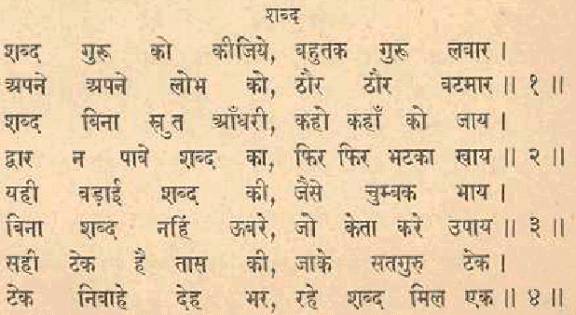 शब्द
शब्द गुरू को कीजिये, बहुतक गुरू लबार ।
अपने अपने लोभ को, ठौर ठौर बटमार ॥ १ ॥
शब्द बिना स्रुत आँधरी, कहो कहाँ को जाय ।
द्वार न पावे शब्द का, फिर फिर भटका खाय ॥ २ ॥
यही बड़ाई शब्द की, जैसे चुम्बक भाय ।
बिना शब्द नहिं ऊबरे, जो केता करे उपाय ॥ ३ ॥
सही टेक है तास की, जाके सतगुरु टेक ।
टेक निबाहे देह भर, रहे शब्द मिल एक ॥ ४ ॥